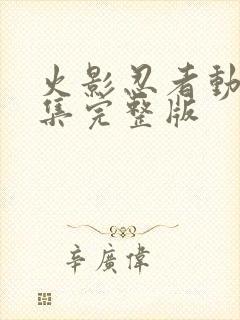 火影忍者動
集完整版
辛廣偉